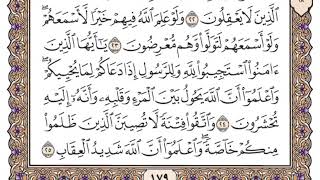 ٱلَّذِينَ لَا يَعْقِلُونَ ٢٢ وَلَوْ عَلِمَ ٱللَّهُ فِيهِمْ خَيْرًا لَّأَسْمَعَهُمْ
وَلَوْ أَسْمَعَهُمْ لَتَوَلَّوا۟ وَّهُم مُّعْرِضُونَ ٢٣ يَٰٓأَيُّهَا ٱلَّذِينَ
ءَامَنُوا۟ ٱسْتَجِيبُوا۟ لِلَّهِ وَلِلرَّسُولِ إِذَا دَعَاكُمْ لِمَا يُحْيِيكُمْ
وَٱعْلَمُوٓا۟ أَنَّ ٱللَّهَ يَحُولُ بَيْنَ ٱلْمَرْءِ وَقَلْبِهِۦ وَأَنَّهُۥٓ إِلَيْهِ
تُحْشَرُونَ ٢٤ وَٱتَّقُوا۟ فِتْنَةً لَّا تُصِيبَنَّ ٱلَّذِينَ ظَلَمُوا۟
مِنكُمْ خَآصَّةً وَٱعْلَمُوٓا۟ أَنَّ ٱللَّهَ شَدِيدُ ٱلْعِقَابِ ٢٥
١٧٩